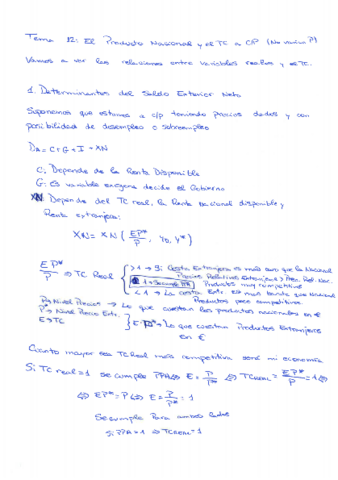 Tema 12: El Producto Nacional y el TC a CP (No varían P)
Vamos a ver las relaciones entre variables reales y el TC.
1. Determinantes del Saldo Exterior Neto
Suponemos que estamos a c/p teniendo precios dados y con
posibilidad de desempleo o sobreempleo
DA = C+G+I+XN
C: Depende de la Renta Disponible
G: Es variable exógena decide el Gobierno
XN: Depende del TC real, la Renta Nacional disponible y
Renta extranjera:
XN = XN (EP*/P, YD, Y*)
EP*/P ⇒ TC Real
>1 → Si Cesta Extranjera es más cara que la Nacional
Precios Relativos Extranjeros > Prec. Rel. Nac.
Productos muy competitivos
<1 → La cesta Extr. es más barata que Nacional
Productos poco competitivos
P → Nivel Precios → Lo que cuestan los productos nacionales en €
P* → Nivel Precio Extr.
E → TC
EP* → Lo que cuestan Productos Extranjeros
en €
Cuanto mayor sea TC Real más competitiva será mi economía
Si TC real = 1 se cumple PPA ⇔ E = P/P* ⇔ TC REAL = EP*/P = 1 ⇔
⇔ EP* = P ⇔ E = P/P* = 1
Se cumple Para ambos lados
Si PPA = 1 → TC REAL = 1